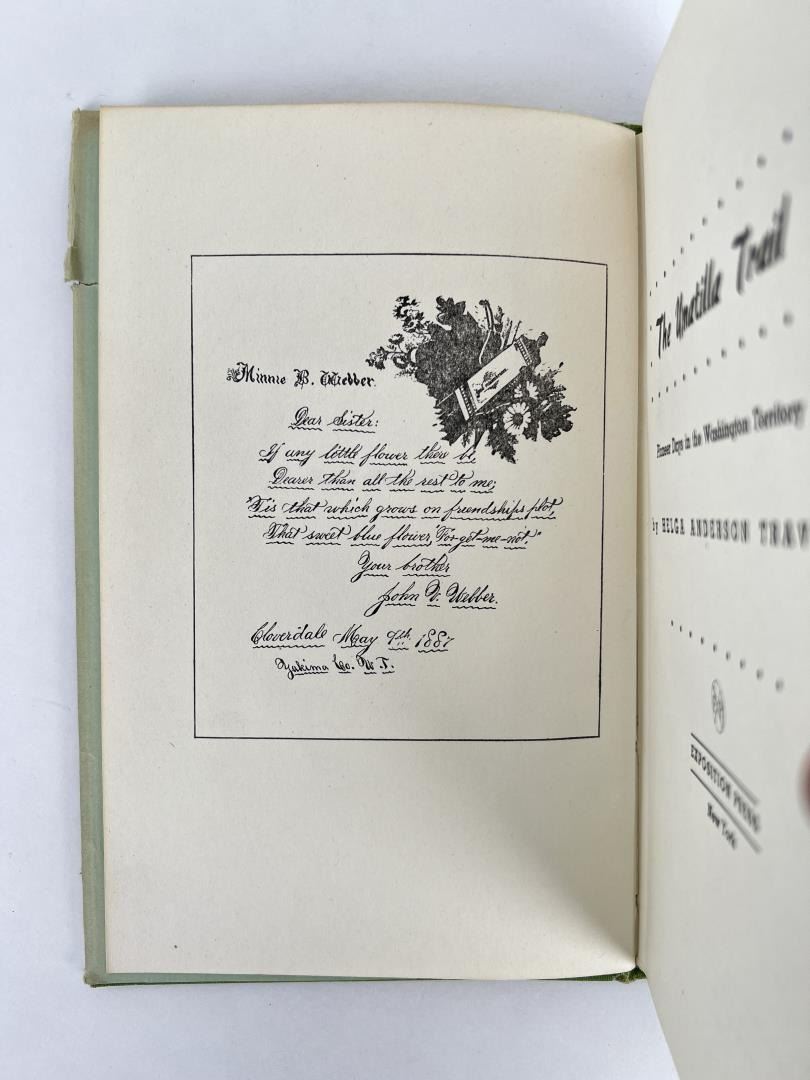 Minnie B. Webber.
Dear Sister:
If any little flower there be,
Dearer than all the rest to me;
'Tis that which grows on friendships plot,
That sweet blue flower, "For-get-me-not."
Your brother
John V. Webber.
Cloverdale May 9th. 1887
Yakima Co. W. T.
The Umatilla Trail
Pioneer Days in the Washington Territory
by HELGA ANDERSON TRAV
EXPOSITION PRESS
New York